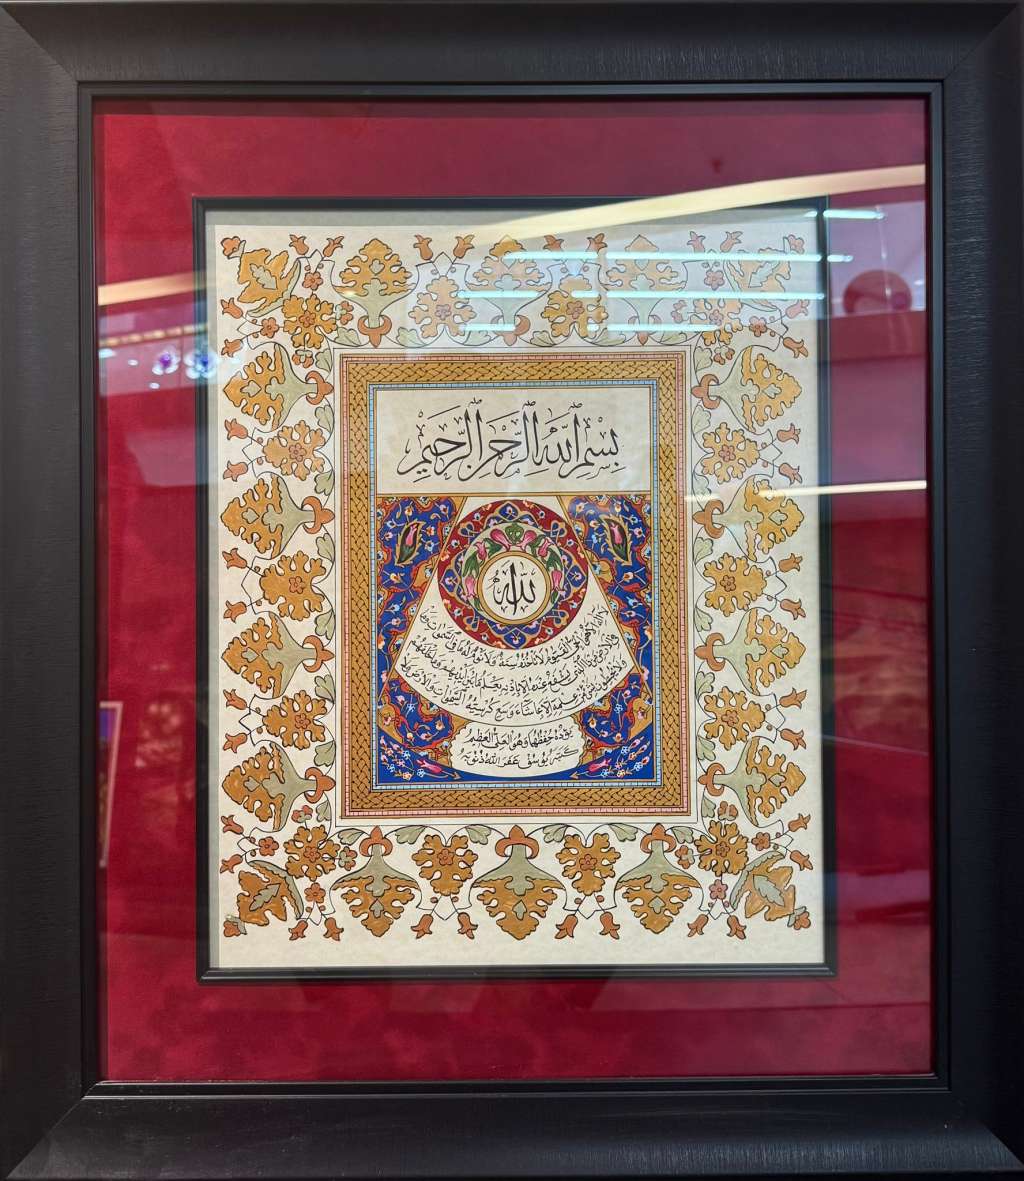 بِسْمِ اللّٰهِ الرَّحْمٰنِ الرَّحِيْمِ
اللّٰه
اللّٰهُ لَا إِلٰهَ إِلَّا هُوَ الْحَيُّ الْقَيُّومُ لَا تَأْخُذُهُ سِنَةٌ وَلَا نَوْمٌ لَهُ مَا فِي السَّمٰوَاتِ وَمَا
فِي الْأَرْضِ مَنْ ذَا الَّذِي يَشْفَعُ عِنْدَهُ إِلَّا بِإِذْنِهِ يَعْلَمُ مَا بَيْنَ أَيْدِيهِمْ وَمَا خَلْفَهُمْ
وَلَا يُحِيطُونَ بِشَيْءٍ مِنْ عِلْمِهِ إِلَّا بِمَا شَاءَ وَسِعَ كُرْسِيُّهُ السَّمٰوَاتِ وَالْأَرْضَ وَلَا
يَؤُدُهُ حِفْظُهُمَا وَهُوَ الْعَلِيُّ الْعَظِيمُ
يُوسُفْ غَفَرَ اللّٰهُ ذُنُوبَهُ